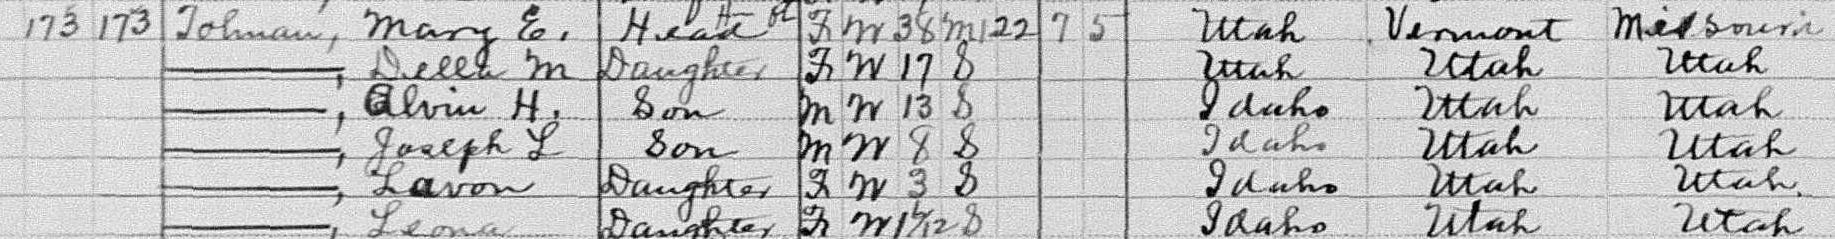 173 173 Tolman, Mary E. Head F W 38 M1 22 7 5 Utah Vermont Missouri
———, Della M Daughter F W 17 S Utah Utah Utah
———, Alvin H. Son M W 13 S Idaho Utah Utah
———, Joseph L Son M W 8 S Idaho Utah Utah
———, Lavon Daughter F W 3 S Idaho Utah Utah.
———, Leona Daughter F W S Idaho Utah Utah